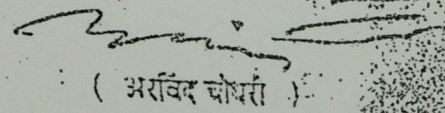 ( अरविंद चोधरी )